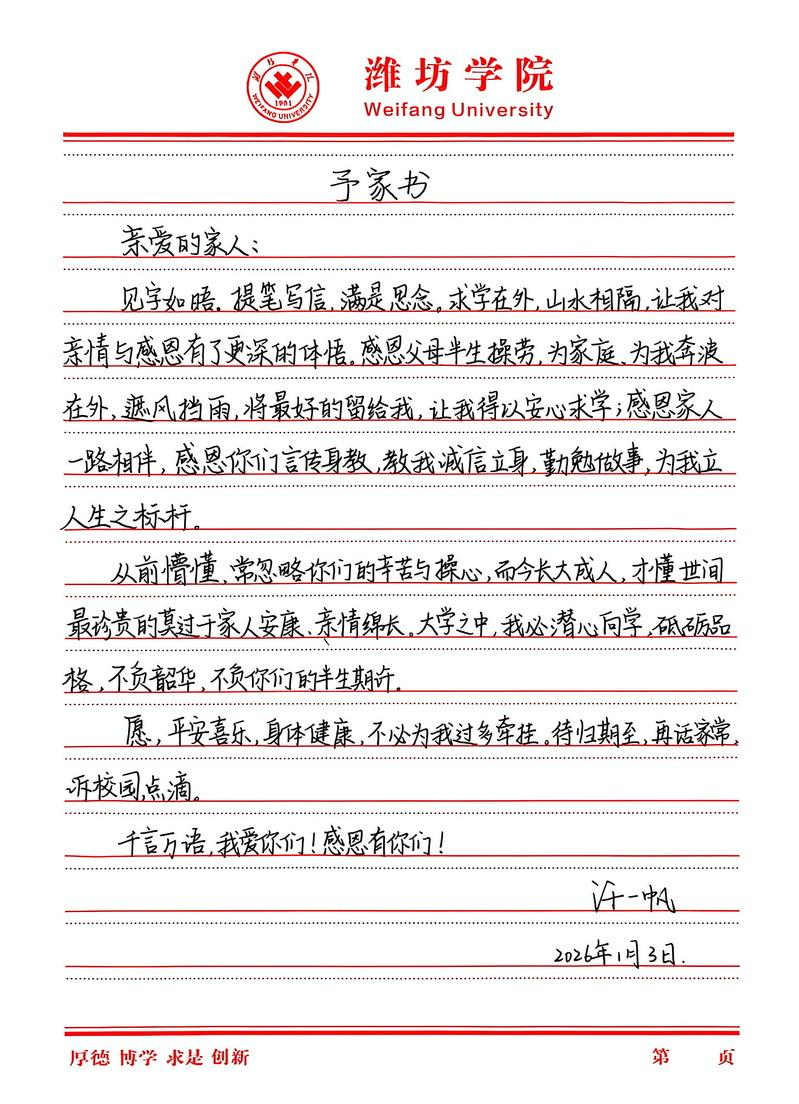 潍坊学院
WEIFANG UNIVERSITY
1951
潍坊学院
Weifang University
予家书
亲爱的家人：
见字如晤。提笔写信，满是思念。求学在外，山水相隔，让我对
亲情与感恩有了更深的体悟。感恩父母半生操劳，为家庭、为我奔波
在外，遮风挡雨，将最好的留给我，让我得以安心求学；感恩家人
一路相伴，感恩你们言传身教，教我诚信立身，勤勉做事，为我立
人生之标杆。
从前懵懂，常忽略你们的辛苦与操心，而今长大成人，才懂世间
最珍贵的莫过于家人安康、亲情绵长。大学之中，我必潜心向学、砥砺品
格，不负韶华，不负你们的半生期许。
愿，平安喜乐，身体健康，不必为我过多牵挂。待归期至，再话家常、
诉校园点滴。
千言万语，我爱你们！感恩有你们！
许一帆
2026年1月3日.
厚德 博学 求是 创新
第 页